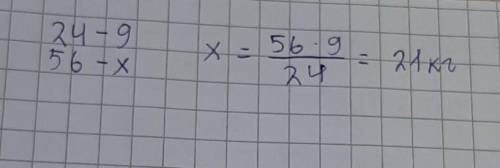 24 - 9
56 - x
x = 56 · 9 / 24 = 21 кг